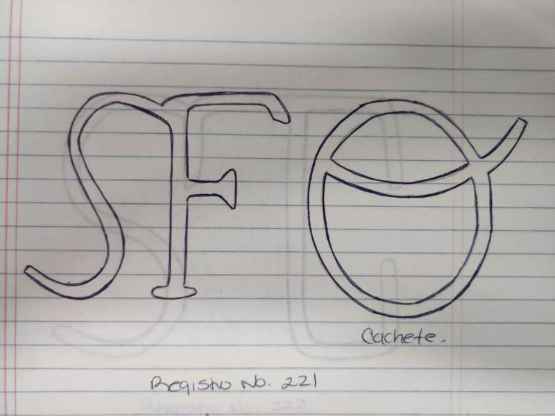 SF
Cachete.
Registro No. 221